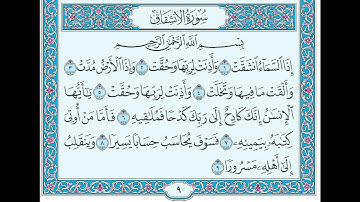 سُورَةُ الِانْشِقَاقِ
بِسْمِ اللَّهِ الرَّحْمَٰنِ الرَّحِيمِ
إِذَا السَّمَاءُ انْشَقَّتْ ١ وَأَذِنَتْ لِرَبِّهَا وَحُقَّتْ ٢ وَإِذَا الْأَرْضُ مُدَّتْ ٣
وَأَلْقَتْ مَا فِيهَا وَتَخَلَّتْ ٤ وَأَذِنَتْ لِرَبِّهَا وَحُقَّتْ ٥ يَٰأَيُّهَا
الْإِنْسَٰنُ إِنَّكَ كَادِحٌ إِلَىٰ رَبِّكَ كَدْحًا فَمُلَٰقِيهِ ٦ فَأَمَّا مَنْ أُوتِيَ
كِتَٰبَهُ بِيَمِينِهِ ٧ فَسَوْفَ يُحَاسَبُ حِسَابًا يَسِيرًا ٨ وَيَنْقَلِبُ
إِلَىٰ أَهْلِهِ مَسْرُورًا ٩
٩